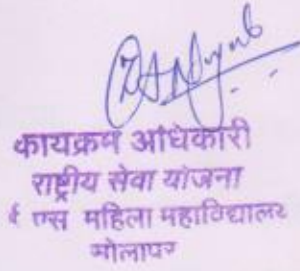 कायक्रम अधिकारी
राष्ट्रीय सेवा योजना
एस महिला महाविद्यालय